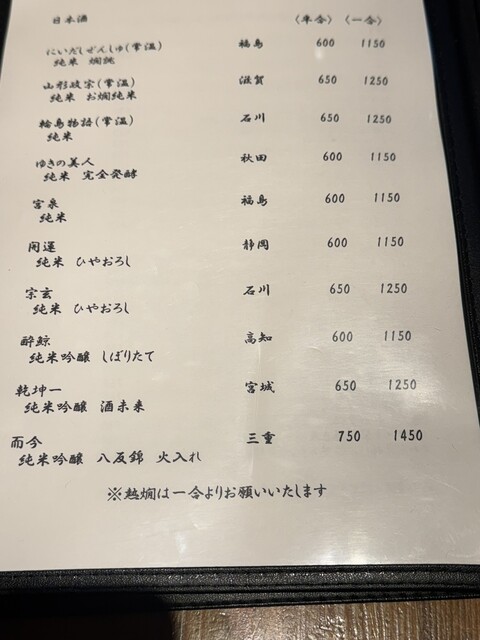 日本酒 〈半合〉 〈一合〉
にいだしぜんしゅ(常温) 福島 600 1150
純米 燗誂
山形政宗(常温) 滋賀 650 1250
純米 お燗純米
輪島物語(常温) 石川 650 1250
純米
ゆきの美人 秋田 600 1150
純米 完全発酵
宮泉 福島 600 1150
純米
開運 静岡 600 1150
純米 ひやおろし
宗玄 石川 650 1250
純米 ひやおろし
酔鯨 高知 600 1150
純米吟醸 しぼりたて
乾坤一 宮城 650 1250
純米吟醸 酒未来
而今 三重 750 1450
純米吟醸 八反錦 火入れ
※熱燗は一合よりお願いいたします